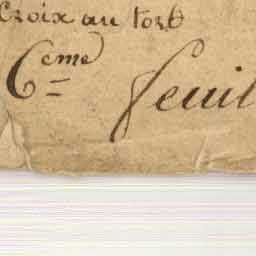 Croix au fort
6eme feuil